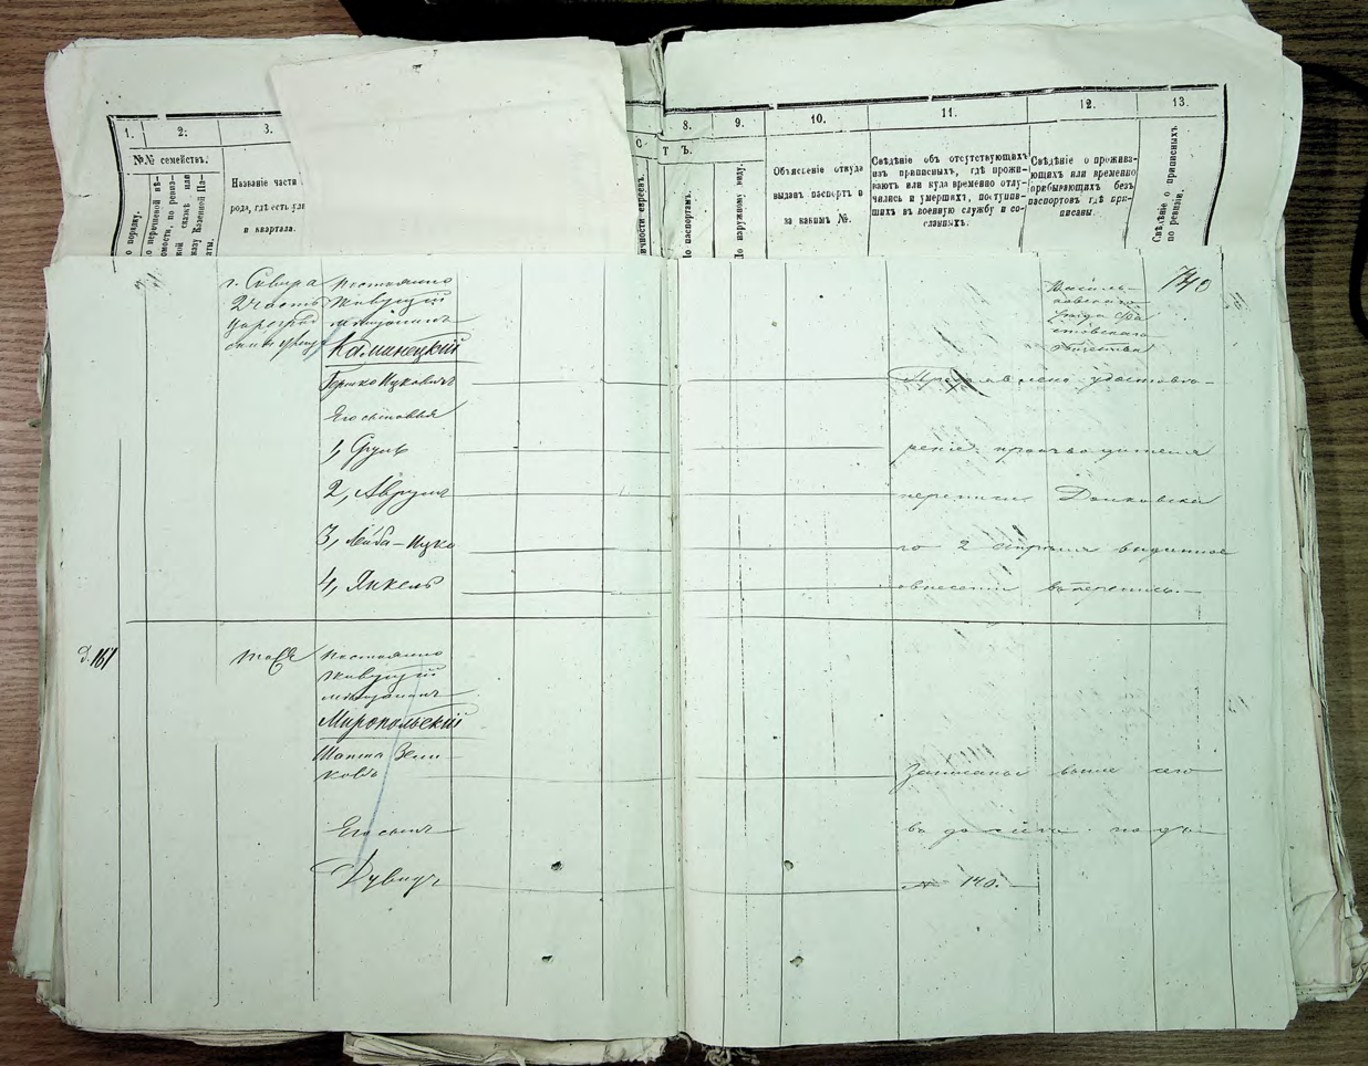 1.
2.
3.
№№ семействъ.
о порядку.
о перечневой вѣ-
домости, по ревиз-
кой сказкѣ или
казу Казенной Па-
аты.
Названіе части
рода, гдѣ есть ули
и квартала.
С Т Ъ.
8.
9.
10.
11.
12.
13.
ичности евреевъ.
По паспортамъ.
По наружному виду.
Объясненіе откуда
выданъ паспортъ и
за какимъ №.
Свѣдѣніе объ отсутствующихъ
изъ приписныхъ, гдѣ прожи-
ваютъ или куда временно отлу-
чились и умершихъ, поступив-
шихъ въ военную службу и со-
сланныхъ.
Свѣдѣніе о прожива-
ющихъ или временно
прибывающихъ безъ
паспортовъ гдѣ при-
писаны.
Свѣдѣніе о приписныхъ
по ревизіи.
г. Сквира
2 часть
постоянно
живущій
мѣщанинъ
Каминецкій
Ицковичъ
Его сыновья
1, Сруль
2, Аврумъ
3, Лейба-Ицко
4, Янкель
740
общества
удостовѣ-
реніе производителя
переписи
го 2 выданное
внесении въ перепись.
161
тоже
постоянно
живущій
мѣщанинъ
Миропольскій
Шапта Зели-
ковъ
Его сынъ
Дувидъ
Записаны выше сего
въ
№ 140.